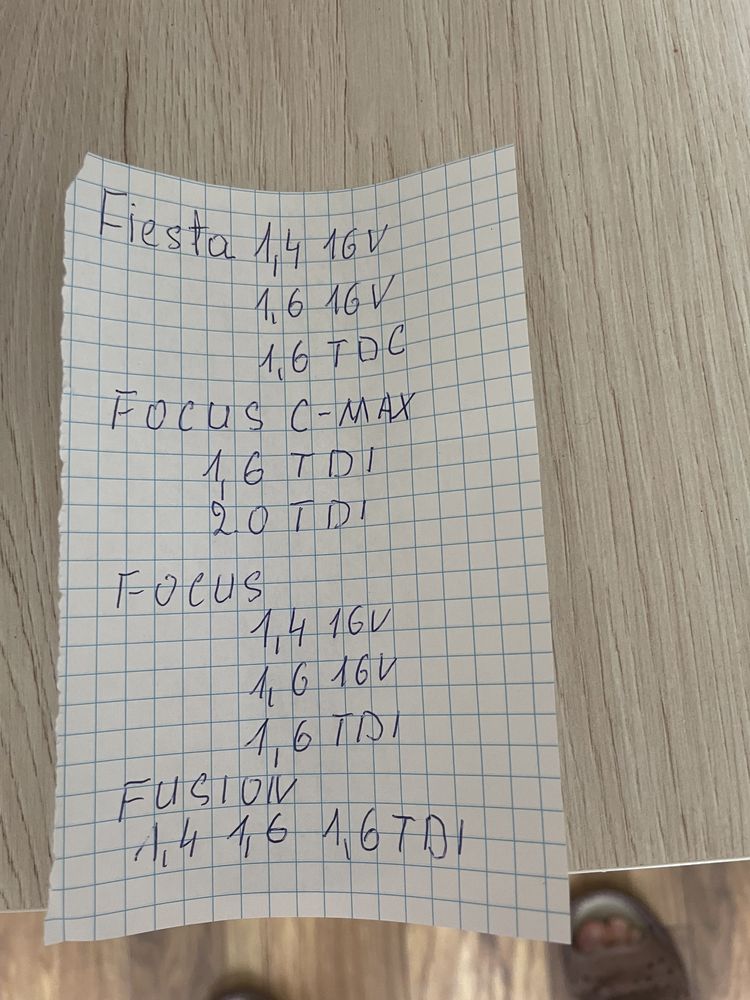 Fiesta 1,4 16V
1,6 16V
1,6 TDC
FOCUS C-MAX
1,6 TDI
2.0 TDI
FOCUS
1,4 16V
1,6 16V
1,6 TDI
FUSION
1,4 1,6 1,6 TDI